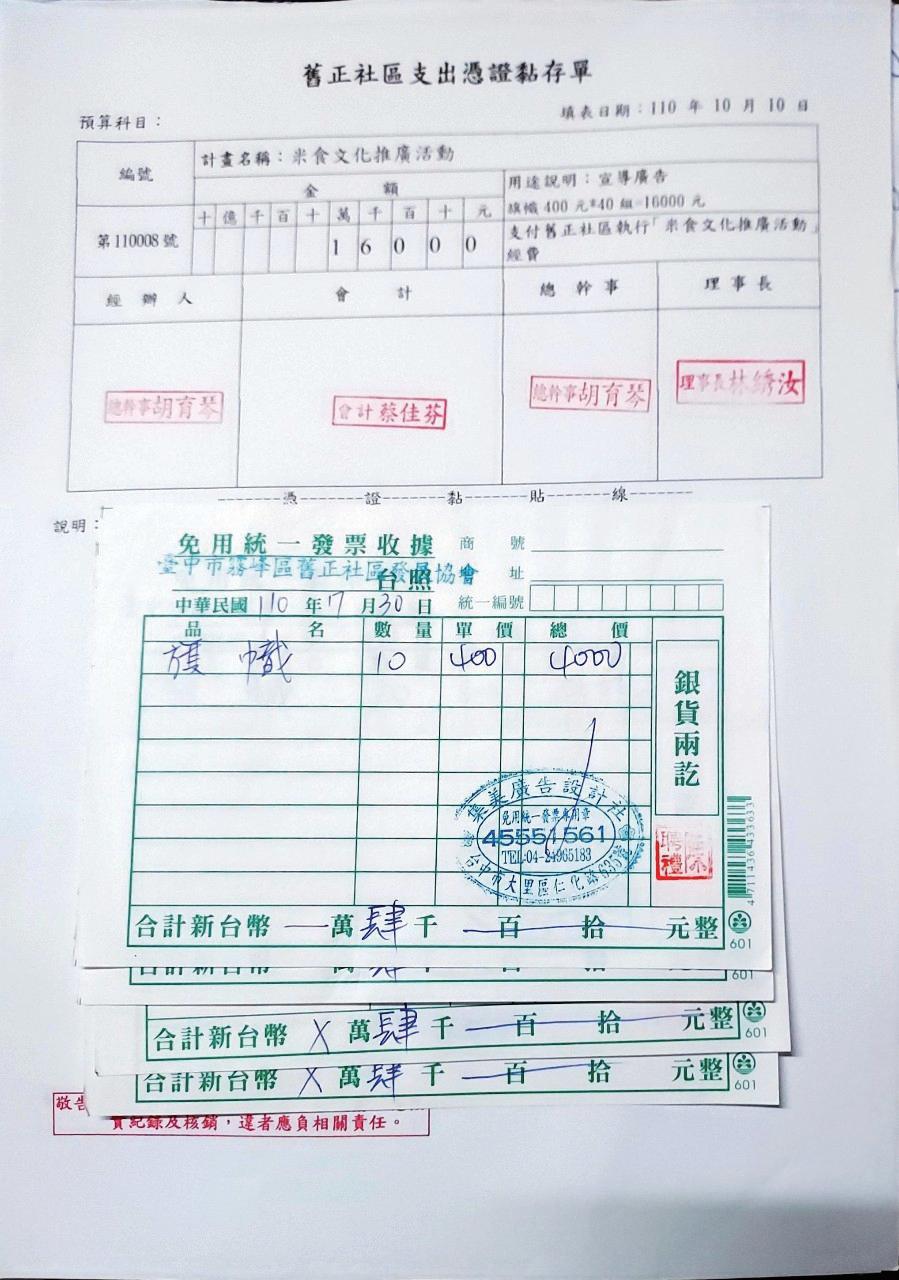 舊正社區支出憑證黏存單
預算科目：
填表日期：110 年 10 月 10 日
編號
計畫名稱：米食文化推廣活動
金 額
用途說明：宣導廣告
旗幟 400 元*40 組=16000 元
十 億 千 百 十 萬 千 百 十 元
第 110008 號
1 6 0 0 0
支付舊正社區執行「米食文化推廣活動」
經費
經 辦 人 會 計 總 幹 事 理 事 長
總幹事胡育琴
會計蔡佳芬
總幹事胡育琴
理事長林綉汝
憑 證 黏 貼 線
說明：
免用統一發票收據
商 號
臺中市霧峰區舊正社區發展協會
台照
址
中華民國 110 年 7 月 30 日
統一編號
品 名 數 量 單 價 總 價
旗 幟 10 400 4000
銀貨兩訖
集美廣告設計社
免用統一發票專用章
45551561
TEL:04-24965183
台中市大里區仁化路635號
4711436433633
合計新台幣 一 萬 肆 千 百 拾 元整
601
合計新台幣 萬 肆 千 百 拾 元整
601
合計新台幣 X 萬 肆 千 百 拾 元整
601
合計新台幣 X 萬 肆 千 百 拾 元整
601
敬告
實紀錄及核銷，違者應負相關責任。